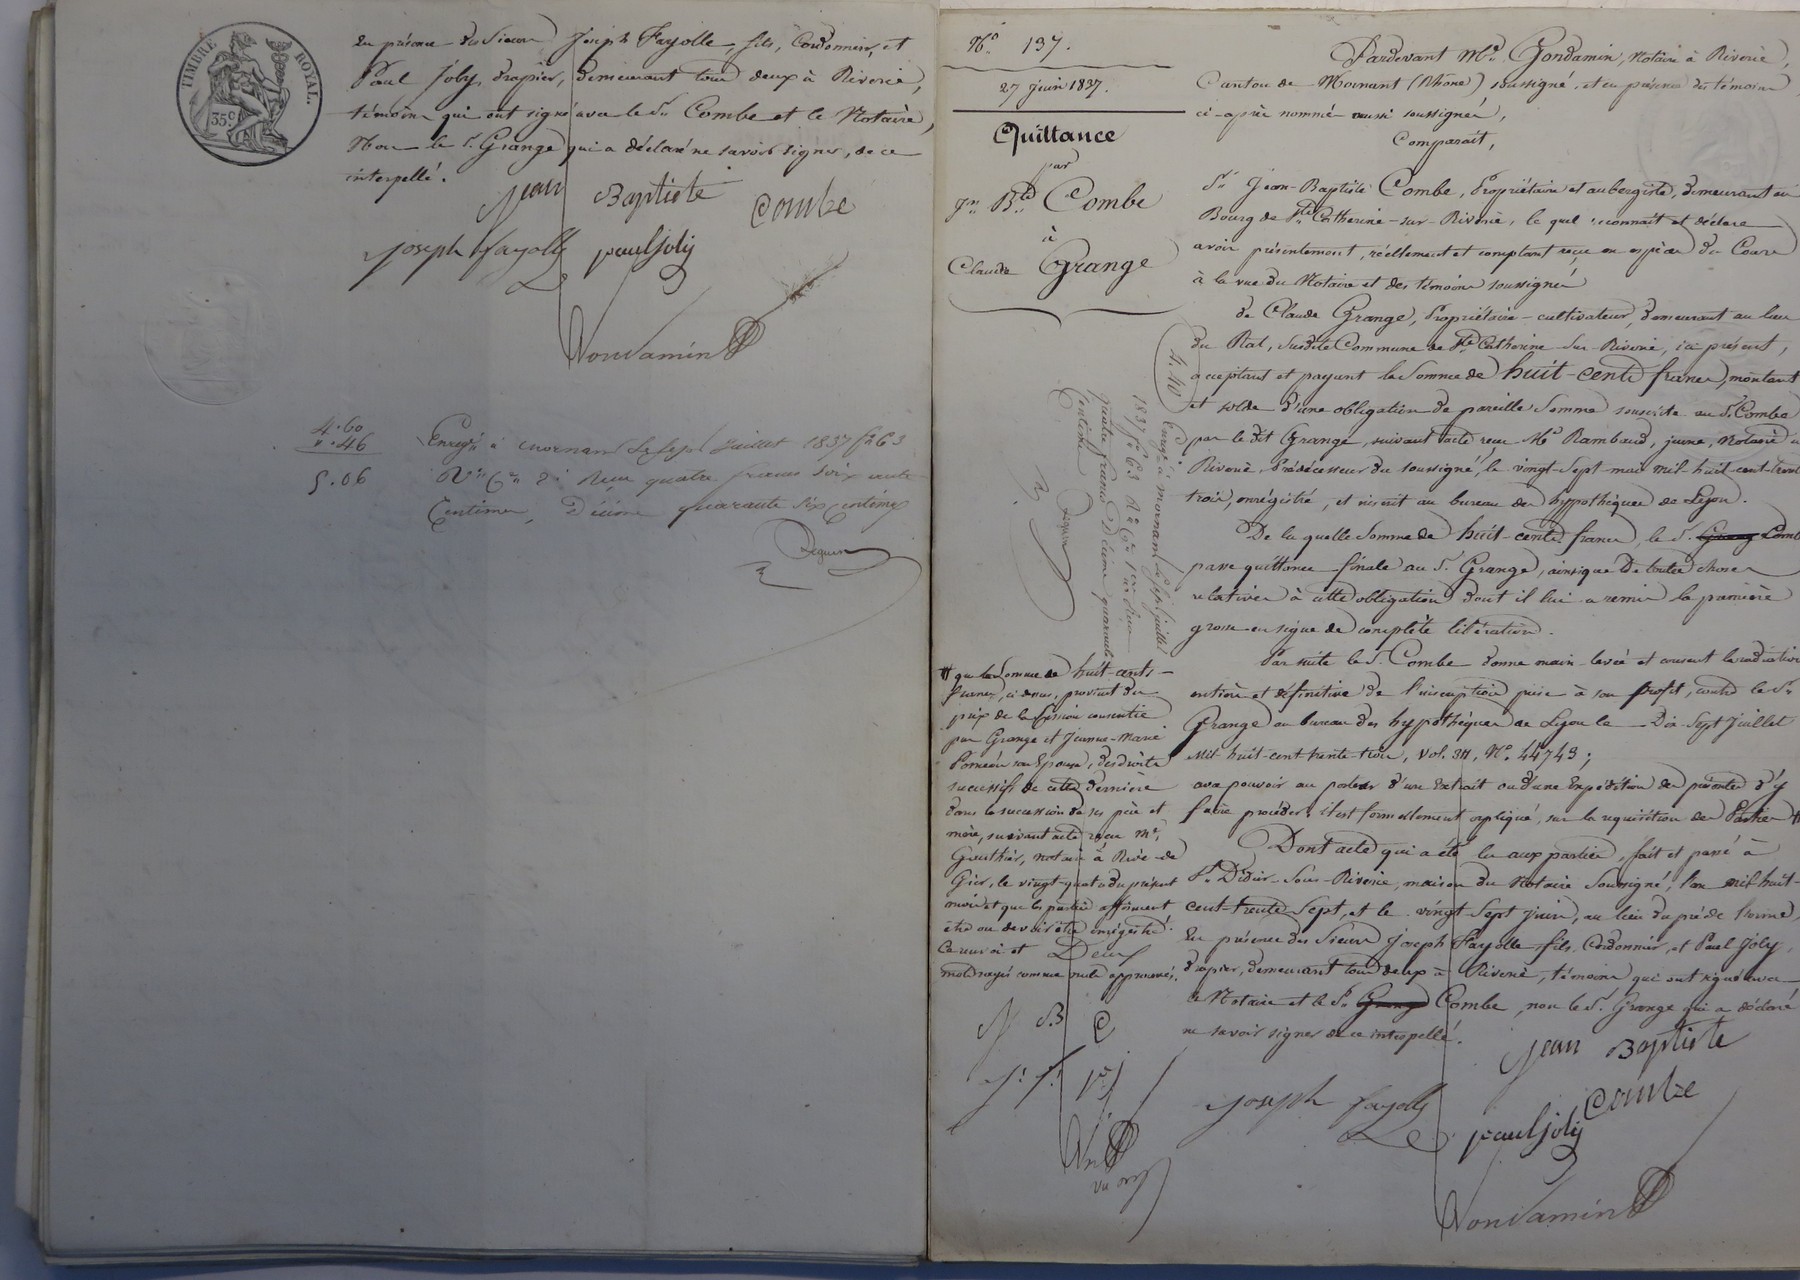 TIMBRE ROYAL.
35 c.
En présence des Sieurs Joseph Fayolle, fils, Cordonnier, et
Paul Joly, drapier, demeurant tous deux à Riverie,
témoins qui ont signé avec le Sr. Combe et le Notaire,
Non le Sr. Grange qui a déclaré ne savoir signer, de ce
interpellé.
Jean Baptiste Combe
Joseph fayolle paul joly
Gondamin
4.60
".46
5.06
Enregré. à Mornant le sept juillet 1837 fo. 63
Ro. Ce. 2. Reçu quatre francs soixante
Centimes, Décime quarante six centimes
No. 137.
27 juin 1837.
Quittance
par
Jn. Bte. Combe
à
Claude Grange
4.40
Enregé. à Mornant le sept juillet
1837 fo. 63 Ro. Ce. 1re. Reçu
quatre francs Décime quarante
Centimes
Pardevant Me. Gondamin, Notaire à Riverie,
Canton de Mornant (Rhône) soussigné, et en présence des témoins
ci-après nommés aussi soussignés,
Comparait,
Sr. Jean-Baptiste Combe, Propriétaire et aubergiste, demeurant au
Bourg de Ste. Catherine-sur-Riverie, lequel reconnait et déclare
avoir présentement, réellement et comptant reçu en espèces du Cours
à la vue du Notaire et des témoins soussignés
de Claude Grange, Propriétaire-cultivateur, demeurant au lieu
du Rat, susdite Commune de Ste. Catherine-sur-Riverie, ici présent,
acceptant et payant la Somme de huit-cents francs, montant
et solde d'une obligation de pareille Somme souscrite au Sr. Combe
par le dit Grange, suivant acte reçu Me. Rambaud, jeune, Notaire à
Riverie, Prédécesseur du soussigné, le vingt-sept mai mil-huit-cent-trente
trois, enregistré, et inscrit au bureau des hypothèques de Lyon.
De la quelle Somme de huit-cents francs, le Sr. Grange Combe
passe quittance finale au Sr. Grange, ainsique De toutes choses
relatives à cette obligation dont il lui a remis la première
grosse en signe de complète libération.
Par suite le Sr. Combe donne main-levée et consent la radiation
entière et définitive de l'inscription prise à son profit, contre le Sr.
Grange au bureau des hypothèques de Lyon le Dix-Sept Juillet
Mil-huit-cent-trente-trois, Vol. 311, No. 44743;
avec pouvoir au porteur d'un Extrait ou d'une Expédition des présentes d'y
faire procéder; il est formellement expliqué, sur la requisition des Parties #
Dont acte qui a été lu aux parties, fait et passé à
St. Didier-Sous-Riverie, maison du Notaire Soussigné, l'an mil-huit-
cent-trente sept, et le vingt-sept juin, au lieu du pré de l'orme,
En présence des Sieurs Joseph Fayolle fils, Cordonnier, et Paul Joly,
drapier, demeurant tous deux à Riverie, témoins qui ont signé avec
le Notaire et le Sr. Grange Combe, non le Sr. Grange qui a déclaré
ne savoir signer de ce interpellé.
# que la Somme de huit-cents-
francs, ci dessus, provient du
prix de la Cession consentie
par Grange et Jeanne-Marie
son Epouse, des droits
successifs de cette dernière
dans la succession de ses père et
mère, suivant acte reçu Me.
Gauthier, notaire à Rive-de
Gier, le vingt-quatre du présent
mois et que les parties affirment
être ou devoir être enregistré.
Ce renvoi et Deux
mots rayés comme nuls approuvés.
J B C
J. f. P J
Jean Baptiste
Combe
Joseph fayolle paul joly
Gondamin